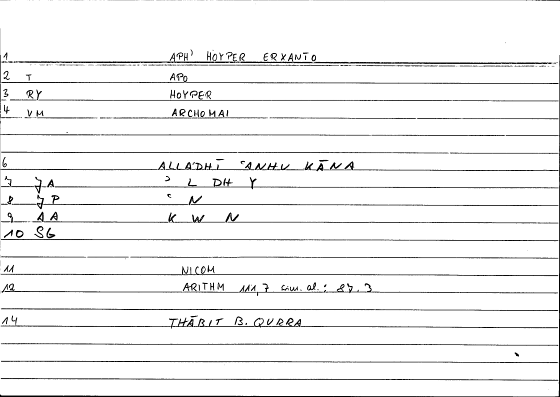 1 APH' HOYPER ERXANTO
2 T APO
3 RY HOYPER
4 VM ARCHOMAI
6 ALLADHĪ ʿANHU KĀNA
7 JA ʾ L DH Y
8 JP ʿ N
9 AA K W N
10 SG
11 NICOM
12 ARITHM 111,7 cum. al.: 87.3
14 THĀBIT B. QURRA